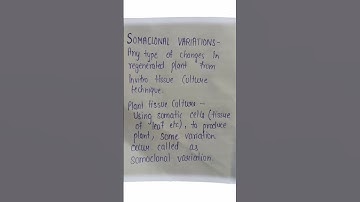 SOMACLONAL VARIATIONS-
Any type of changes in
regenerated plant from
invitro tissue culture
technique.
Plant tissue culture -
Using somatic cells (tissue
of leaf etc), to produce
plant, some variation
occur called as
somaclonal variation.